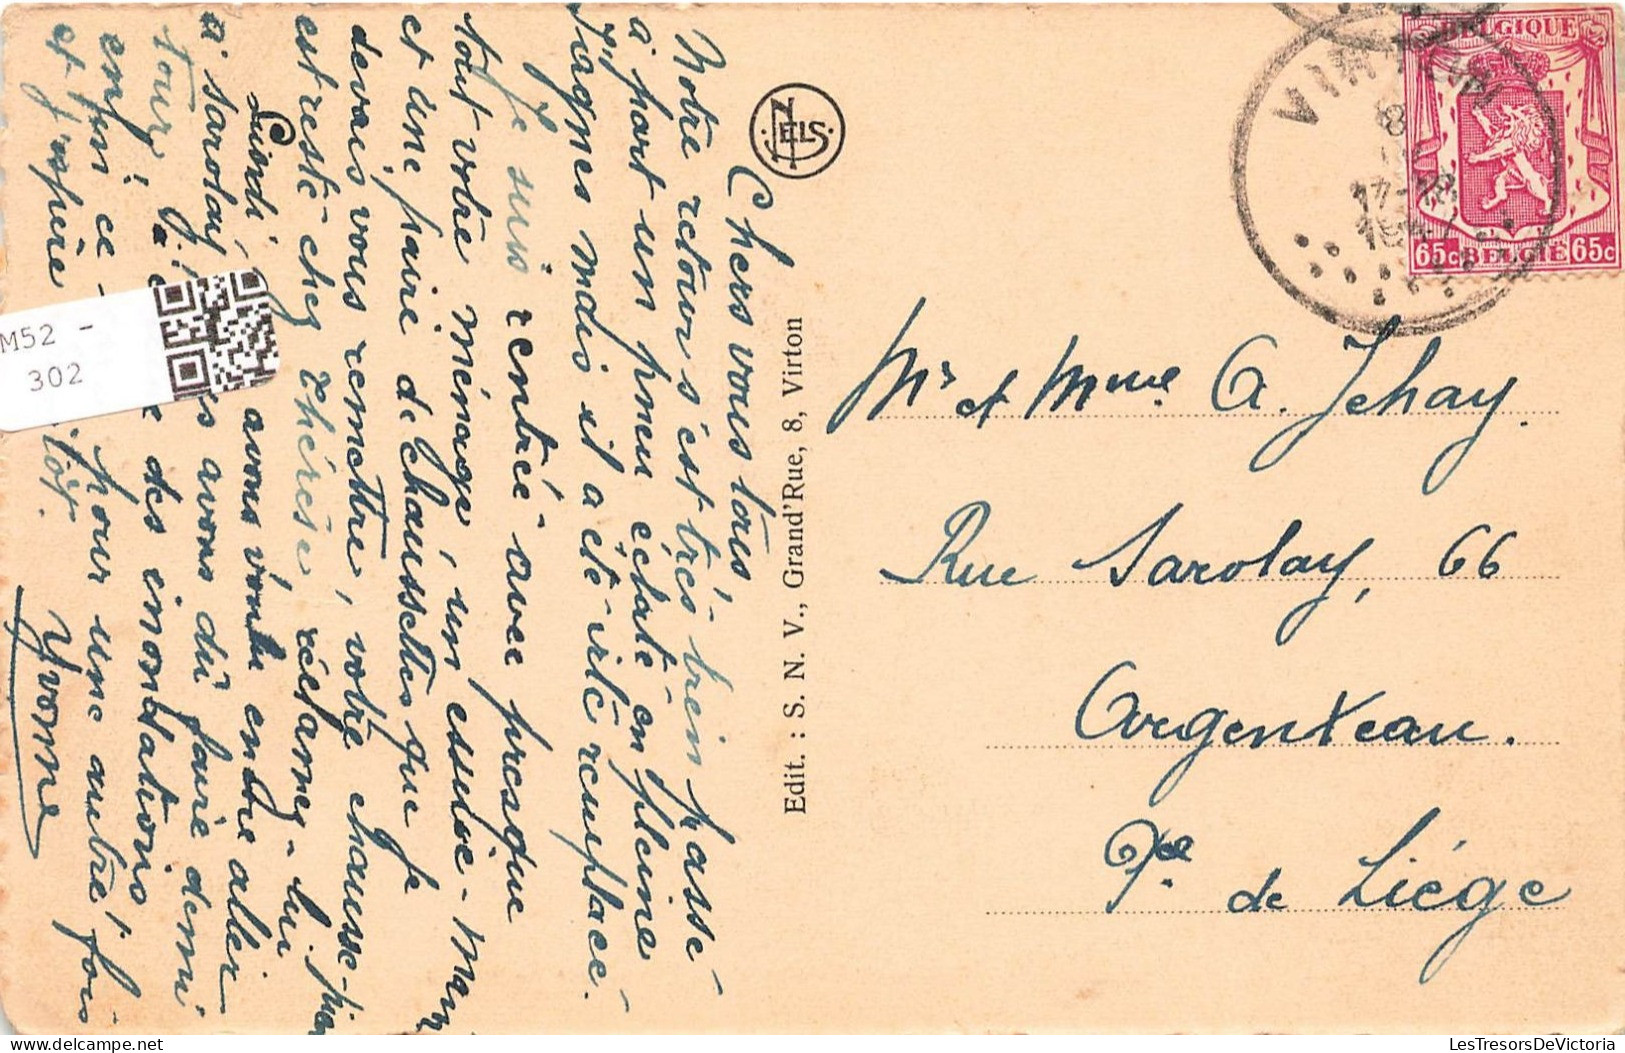 Chers vous tous,
Notre retour s'est très bien passé
à part un pneu éclaté en pleine
Fagnes mais il a été vite remplacé.
Je suis rentrée avec presque
tout votre ménage, un essuie-main
et une paire de chaussettes que je
devais vous remettre, votre chausse-pied
est resté chez Thérèse, réclamez-lui
Lundi, avons voulu entre aller
à Sarolay, avons dû faire demi
tour, des inondations
enfin ce pour une autre fois
et j'espère tôt.
Yvonne
NELS
Edit. : S. N. V., Grand'Rue, 8, Virton
VIRTON
8
17-18
BELGIQUE
65c BELGIË 65c
Mr et Mme A. Jehay.
Rue Sarolay, 66
Argenteau.
Pce de Liége
M52 -
302
LesTresorsDeVictoria
www.delcampe.net